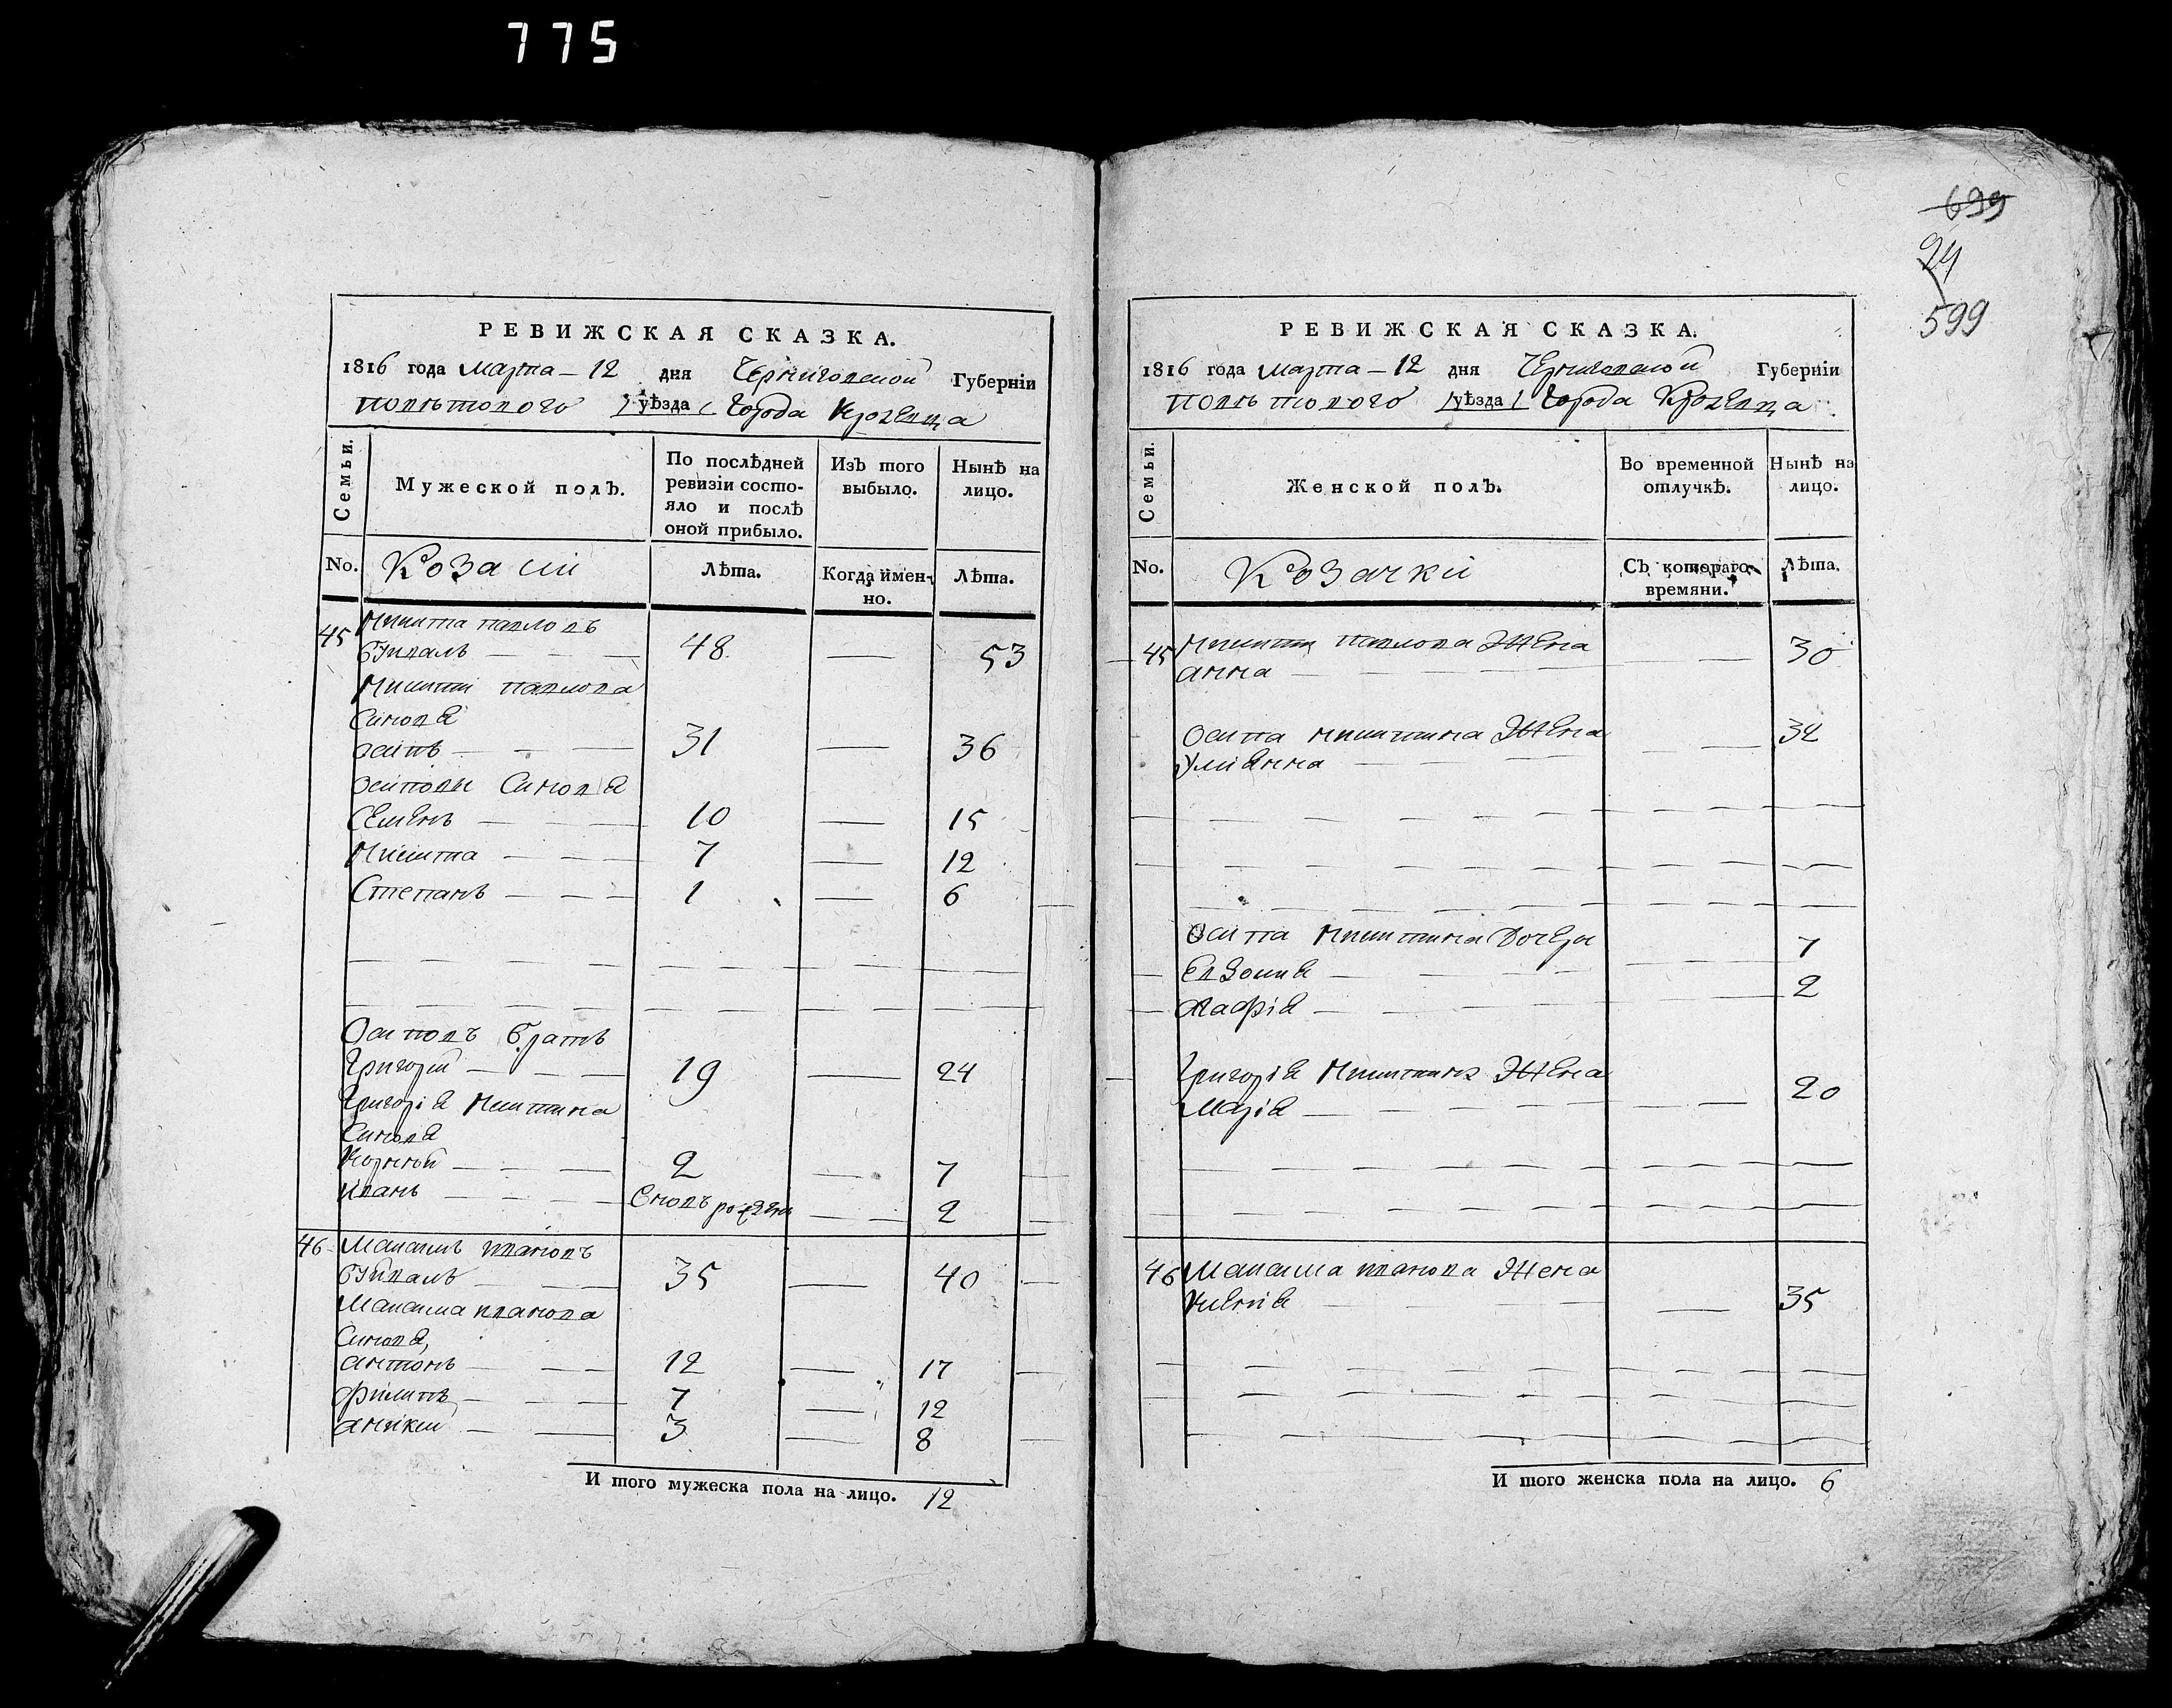 775
699
24
599
РЕВИЖСКАЯ СКАЗКА.
1816 года марта – 12 дня Черниговской Губерніи
поветового уѣзда города Кролевца
Семьи. Мужеской полъ. По послѣдней ревизіи состояло и послѣ оной прибыло. Изъ того выбыло. Нынѣ на лицо.
No. Козаки Лѣта. Когда имен-но. Лѣта.
45 Микита павловъ
48 — 53
Микити павлова
Синовя
осипъ 31 — 36
осиповы Синовя
Семенъ 10 — 15
Микита 7 — 12
Степанъ 1 — 6
Осиповъ братъ
Григорий 19 — 24
Григорія Микитина
Синовя
Корней 2 — 7
иванъ Вновь рожденъ — 2
46 Максимъ ивановъ
35 — 40
Максима иванова
Синовя,
антонъ 12 — 17
филипъ 7 — 12
аникий 3 — 8
И того мужеска пола на лицо. 12
РЕВИЖСКАЯ СКАЗКА.
1816 года марта – 12 дня Черниговской Губерніи
поветового уѣзда города Кролевца
Семьи. Женской полъ. Во временной отлучкѣ. Нынѣ на лицо.
No. Козачки Съ котораго времяни. Лѣта.
45 Микити павлова Жена
анна — 30
Осипа микитина Жена
Улияна — 34
Осипа микитина дочери
Евдокия 7
Агафія — 2
Григорія Микитина Жена
Марія — 20
46 Максима иванова Жена
Ксения — 35
И того женска пола на лицо. 6